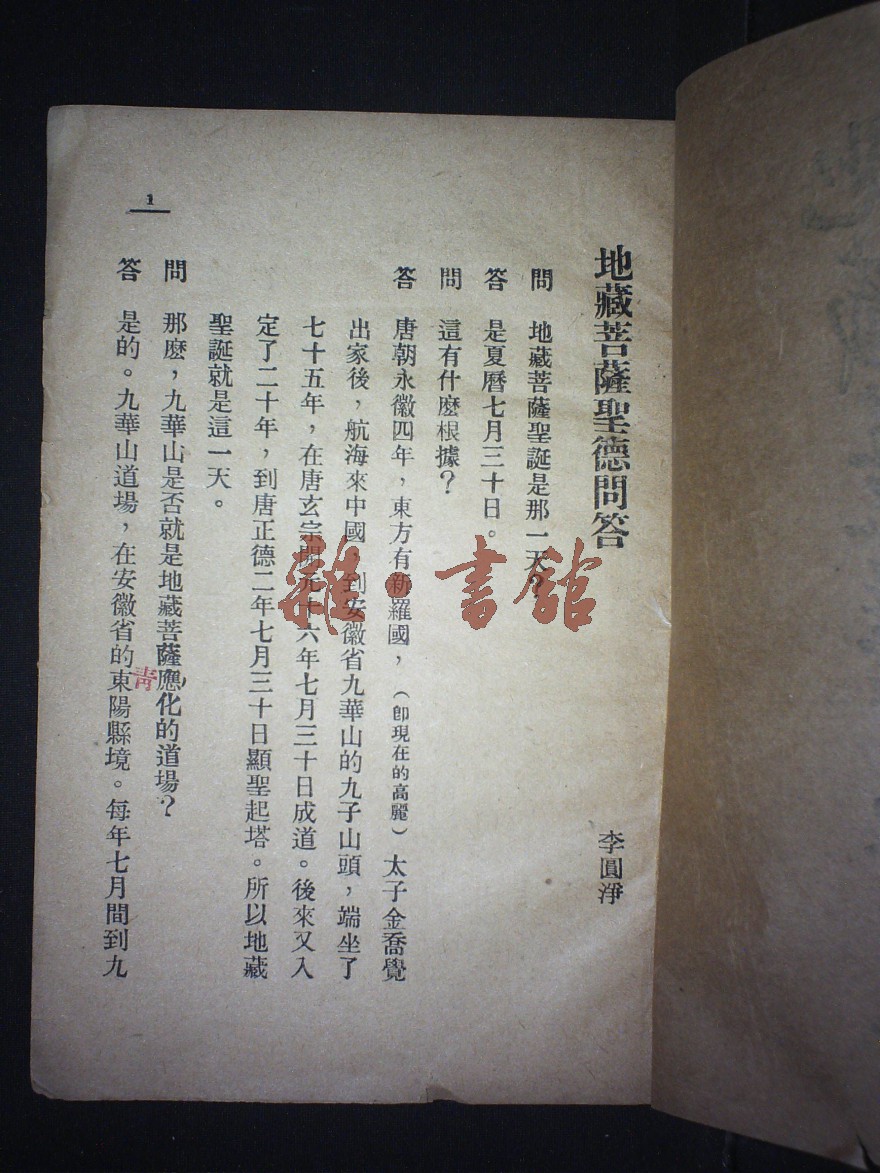 地藏菩薩聖德問答
李圓淨
問　地藏菩薩聖誕是那一天？
答　是夏曆七月三十日。
問　這有什麽根據？
答　唐朝永徽四年，東方有新羅國，（卽現在的高麗）太子金喬覺
出家後，航海來中國，到安徽省九華山的九子山頭，端坐了
七十五年，在唐玄宗開元十六年七月三十日成道。後來又入
定了二十年，到唐正德二年七月三十日顯聖起塔。所以地藏
聖誕就是這一天。
問　那麽，九華山是否就是地藏菩薩應化的道場？
答　是的。九華山道場，在安徽省的東陽縣境。每年七月間到九
青
1
雜·書舘